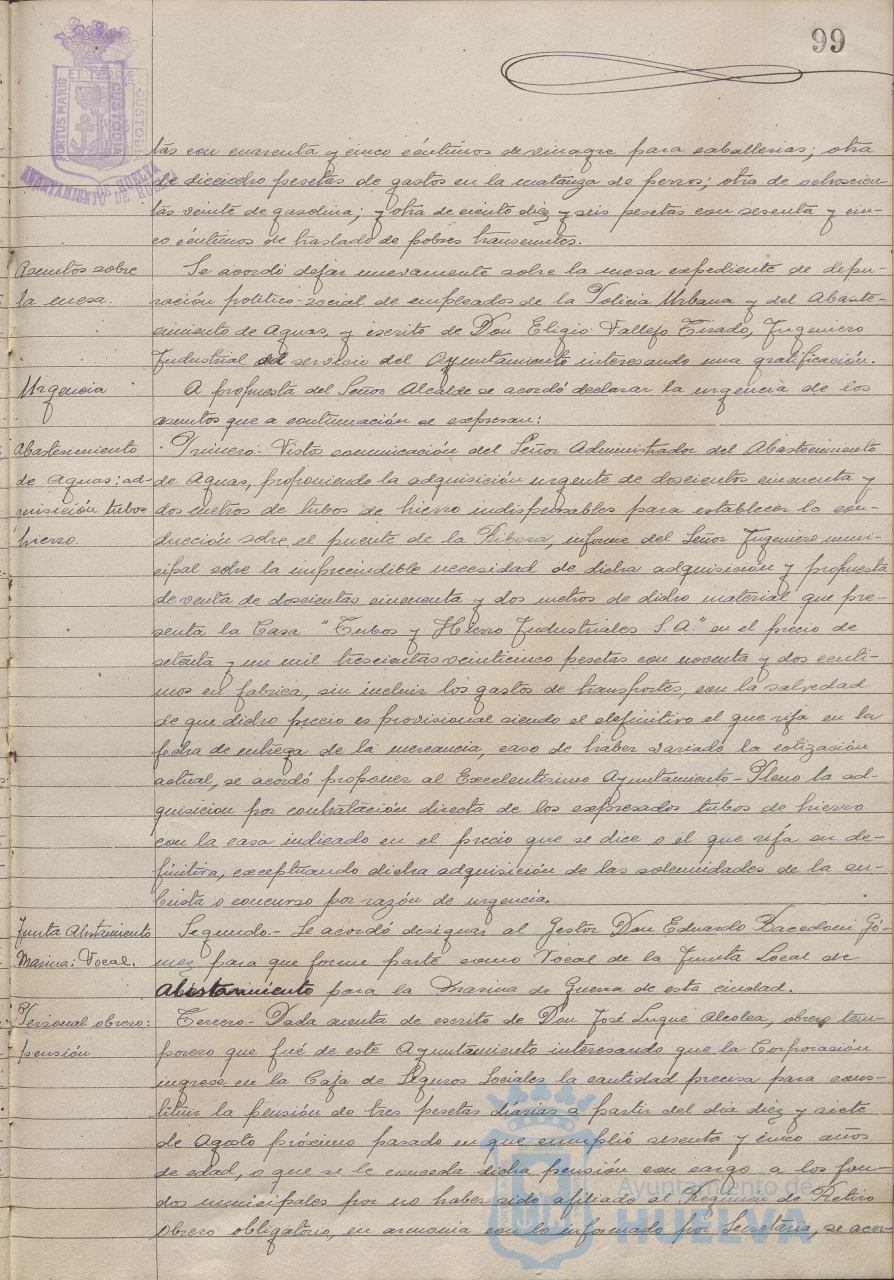 99
PORTUS MARIS
ET TERRAE
CUSTODIA
AYUNTAMIENTO DE HUELVA
tas con cuarenta y cinco céntimos de vinagre para caballerias; otra
de dieciocho pesetas de gastos en la matanza de perros; otra de ochocien-
tas veinte de gasolina; y otra de ciento diez y seis pesetas con sesenta y cin-
co céntimos de traslado de pobres transeuntes.
Asuntos sobre
la mesa.
Se acordó dejar nuevamente sobre la mesa expediente de depu-
ración político-social de empleados de la Policia Urbana y del Abaste-
cimiento de Aguas, y escrito de Don Eligio Vallejo Tirado, Ingeniero
Industrial del servicio del Ayuntamiento interesando una gratificación.
Urgencia
A propuesta del Señor Alcalde se acordó declarar la urgencia de los
asuntos que a continuación se expresan:
Abastecimiento
de Aguas: ad-
quisición tubos
hierro.
Primero.- Visto comunicación del Señor Administrador del Abastecimiento
de Aguas, proponiendo la adquisición urgente de doscientos cincuenta y
dos metros de tubos de hierro indispensables para establecer la con-
ducción sobre el puente de la Ribera, informe del Señor Ingeniero muni-
cipal sobre la imprecindible necesidad de dicha adquisición y propuesta
de venta de doscientas cincuenta y dos metros de dicho material que pre-
senta la Casa "Tubos y Hierro Industriales S.A." en el precio de
setenta y un mil trescientas veinticinco pesetas con noventa y dos centi-
mos en fabrica, sin incluir los gastos de transportes, con la salvedad
de que dicho precio es provisional siendo el definitivo el que rija en la
fecha de entrega de la mercancia, caso de haber variado la cotización
actual, se acordó proponer al Excelentísimo Ayuntamiento-Pleno la ad-
quisicion por contratación directa de los expresados tubos de hierro
con la casa indicado en el precio que se dice o el que rija en de-
finitiva, exceptuando dicha adquisición de las solemnidades de la su-
basta o concurso por razón de urgencia.
Junta Alistamiento
Marina: Vocal.
Segundo.- Se acordó designar al Gestor Don Eduardo Gó-
mez para que forme parte como Vocal de la Junta Local de
Alistamiento para la Marina de Guerra de esta ciudad.
Personal obrero:
pensión
Tercero.- Dada cuenta de escrito de Don José Luque Alcolea, obrero tem-
porero que fué de este Ayuntamiento interesando que la Corporación
ingrese en la Caja de Seguros Sociales la cantidad precisa para cons-
tituir la pensión de tres pesetas diarias a partir del dia diez y siete
de Agosto próximo pasado en que cumplió sesenta y cinco años
de edad, o que se le conceda dicha pensión con cargo a los fon-
dos municipales por no haber sido afiliado al Regimen de Retiro
Obrero obligatorio, en armonia con lo informado por Secretaria, se acor-
Ayuntamiento de
HUELVA